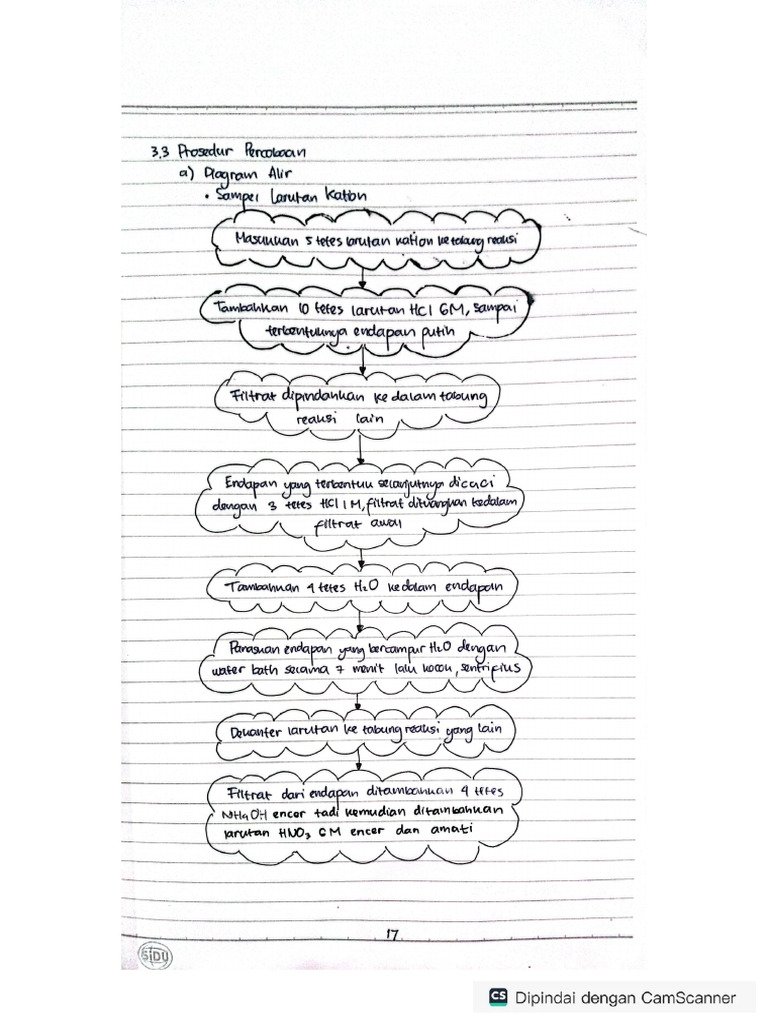 3.3 Prosedur Percobaan
a) Diagram Alir
• Sampel Larutan Kation
Masukkan 5 tetes larutan kation ke tabung reaksi
Tambahkan 10 tetes larutan HCl 6M, sampai
terbentuknya endapan putih
Filtrat dipindahkan ke dalam tabung
reaksi lain
Endapan yang terbentuk selanjutnya dicuci
dengan 3 tetes HCl 1M, filtrat dituangkan kedalam
filtrat awal
Tambahkan 4 tetes H₂O kedalam endapan
Panaskan endapan yang bercampur H₂O dengan
water bath selama 7 menit lalu kocok, sentrifius
Dekanter larutan ke tabung reaksi yang lain
Filtrat dari endapan ditambahkan 4 tetes
NH₄OH encer tadi kemudian ditambahkan
larutan HNO₃ 6M encer dan amati
17
SIDU
CS Dipindai dengan CamScanner